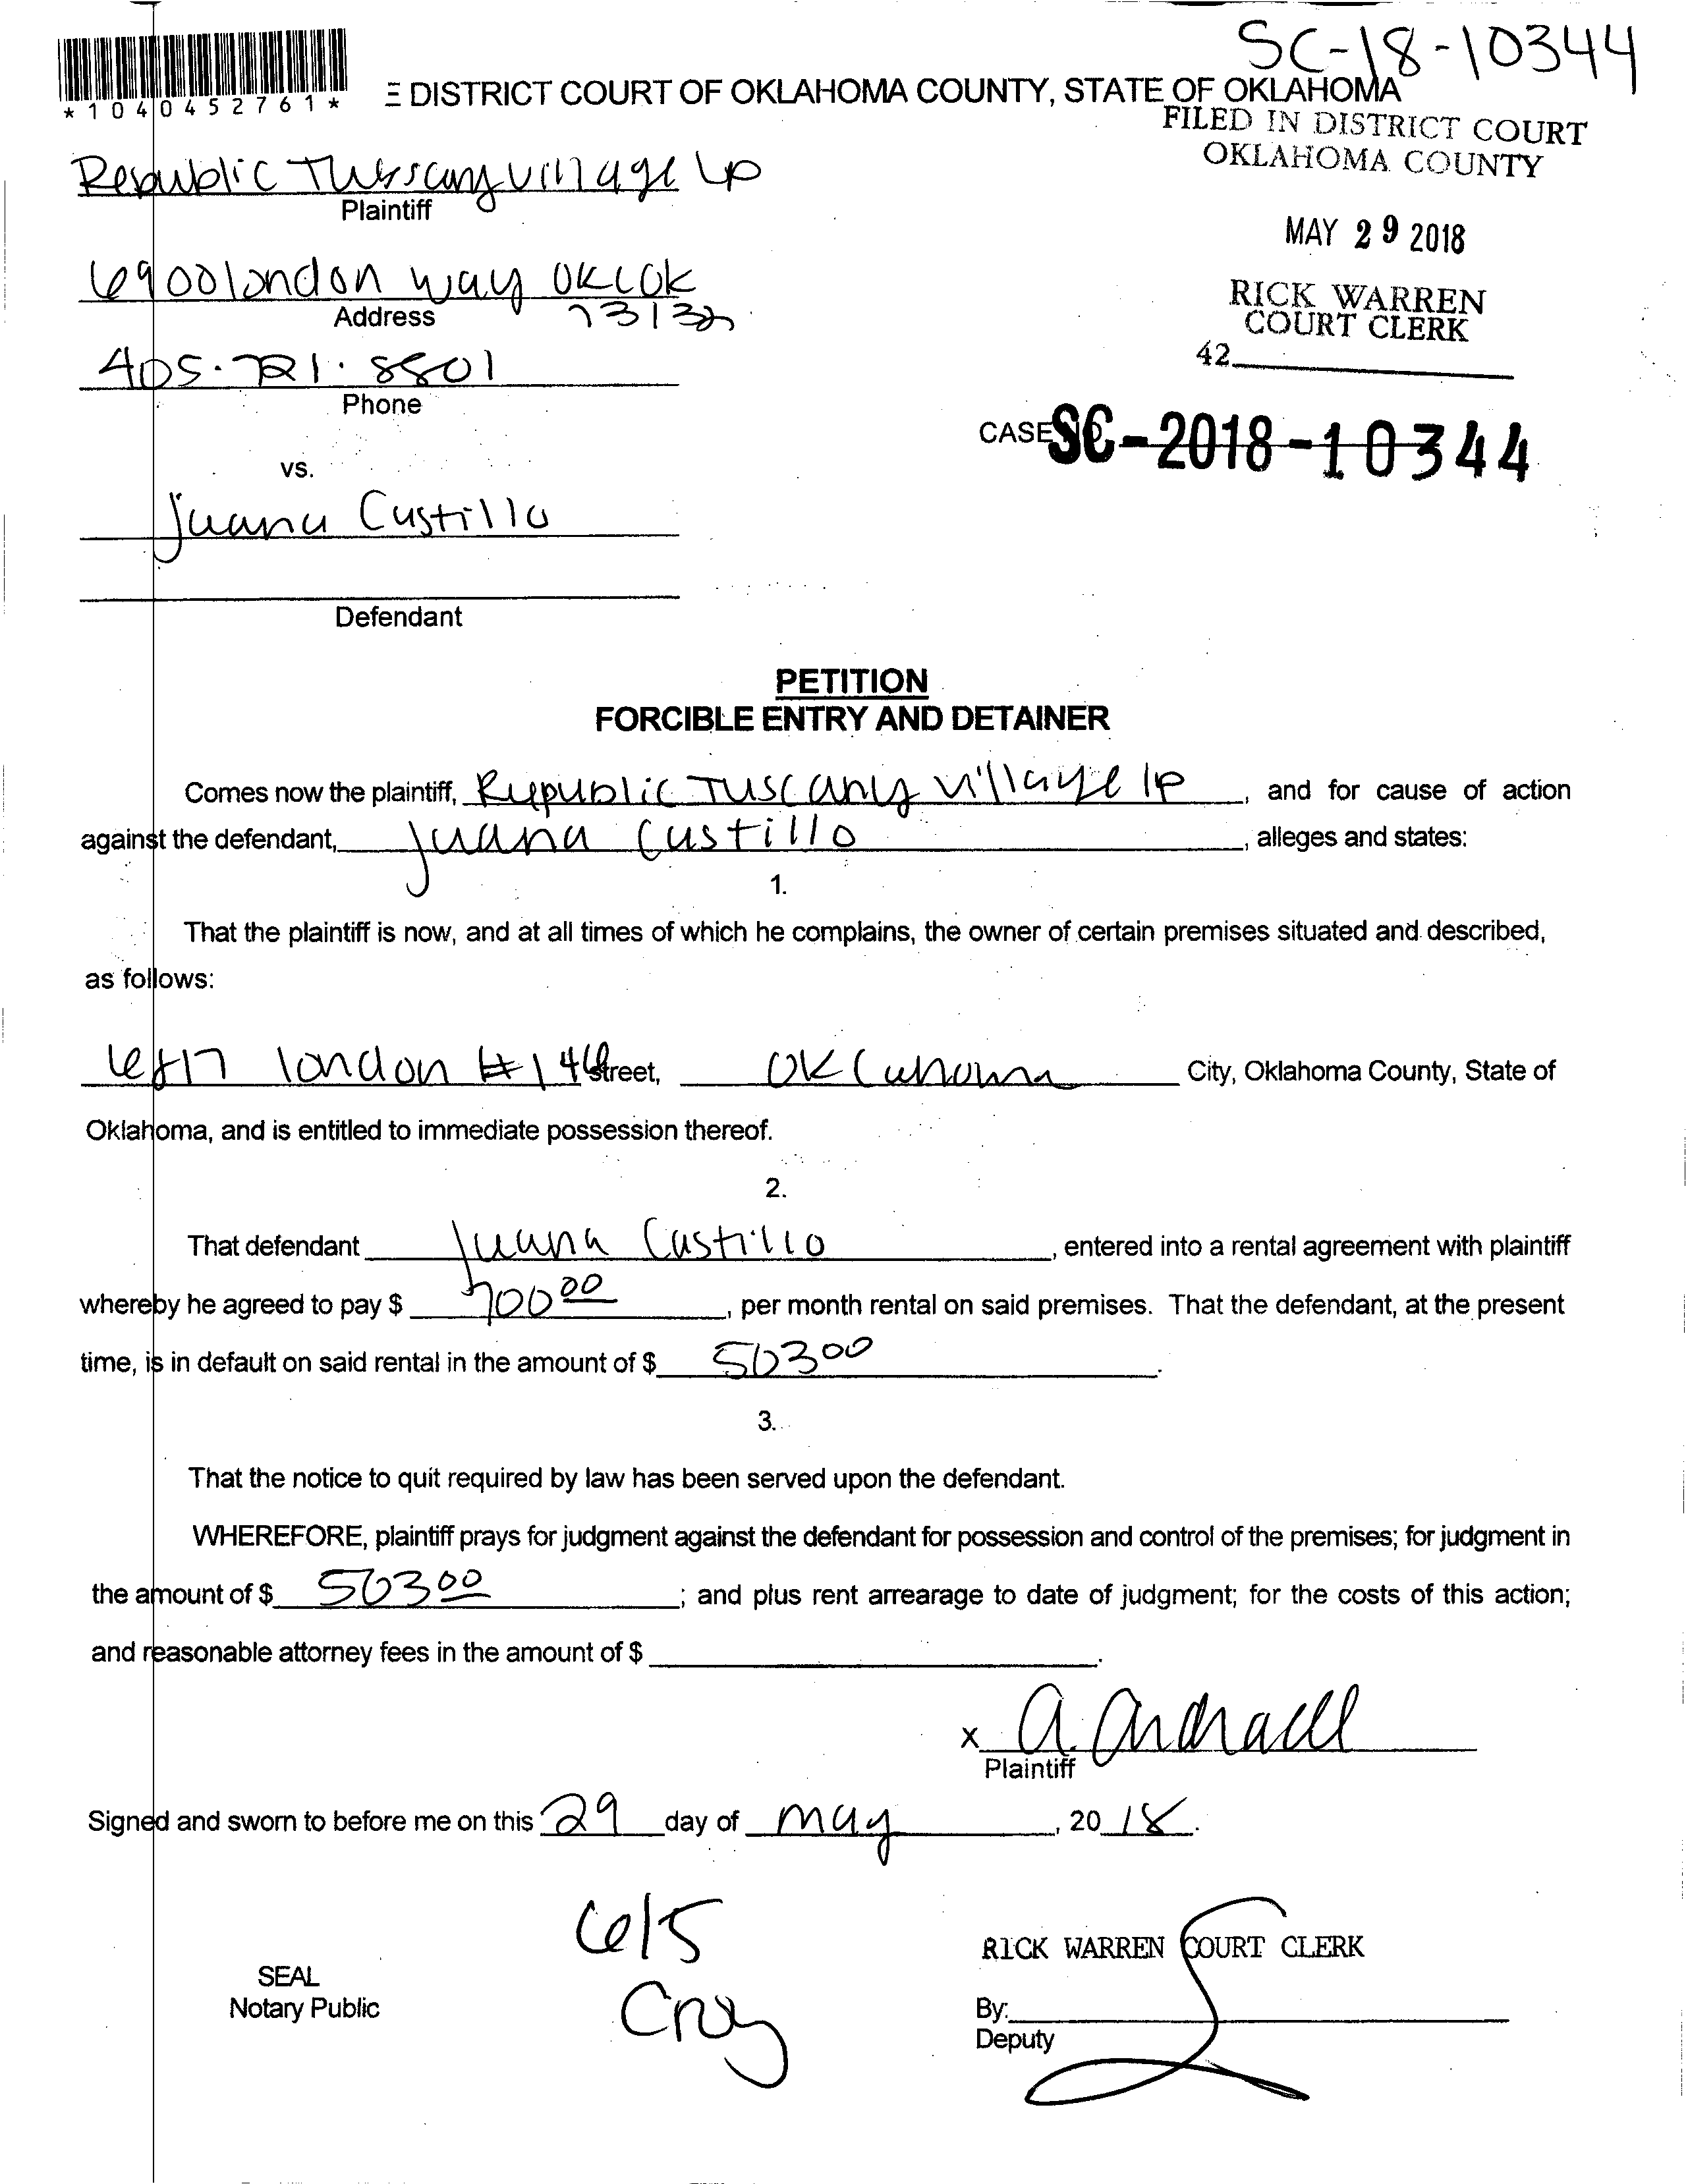 SC-18-10344
*1040452761*
E DISTRICT COURT OF OKLAHOMA COUNTY, STATE OF OKLAHOMA
FILED IN DISTRICT COURT
OKLAHOMA COUNTY
Republic Tuscany Village Lp
Plaintiff
MAY 29 2018
6900 london way OKC OK
Address 73132
RICK WARREN
COURT CLERK
42
405.721.8801
Phone
CASE NO. SC-2018-10344
vs.
Juana Castillo
Defendant
PETITION
FORCIBLE ENTRY AND DETAINER
Comes now the plaintiff, Republic Tuscany Village lp, and for cause of action
against the defendant, Juana Castillo, alleges and states:
1.
That the plaintiff is now, and at all times of which he complains, the owner of certain premises situated and described,
as follows:
6817 london #146 Street, Oklahoma City, Oklahoma County, State of
Oklahoma, and is entitled to immediate possession thereof.
2.
That defendant Juana Castillo, entered into a rental agreement with plaintiff
whereby he agreed to pay $ 700 00, per month rental on said premises. That the defendant, at the present
time, is in default on said rental in the amount of $ 503 00.
3.
That the notice to quit required by law has been served upon the defendant.
WHEREFORE, plaintiff prays for judgment against the defendant for possession and control of the premises; for judgment in
the amount of $ 503 00; and plus rent arrearage to date of judgment; for the costs of this action;
and reasonable attorney fees in the amount of $ .
x A. Andrade
Plaintiff
Signed and sworn to before me on this 29 day of may, 20 18.
6/5
RICK WARREN COURT CLERK
SEAL
Notary Public
By:
Deputy